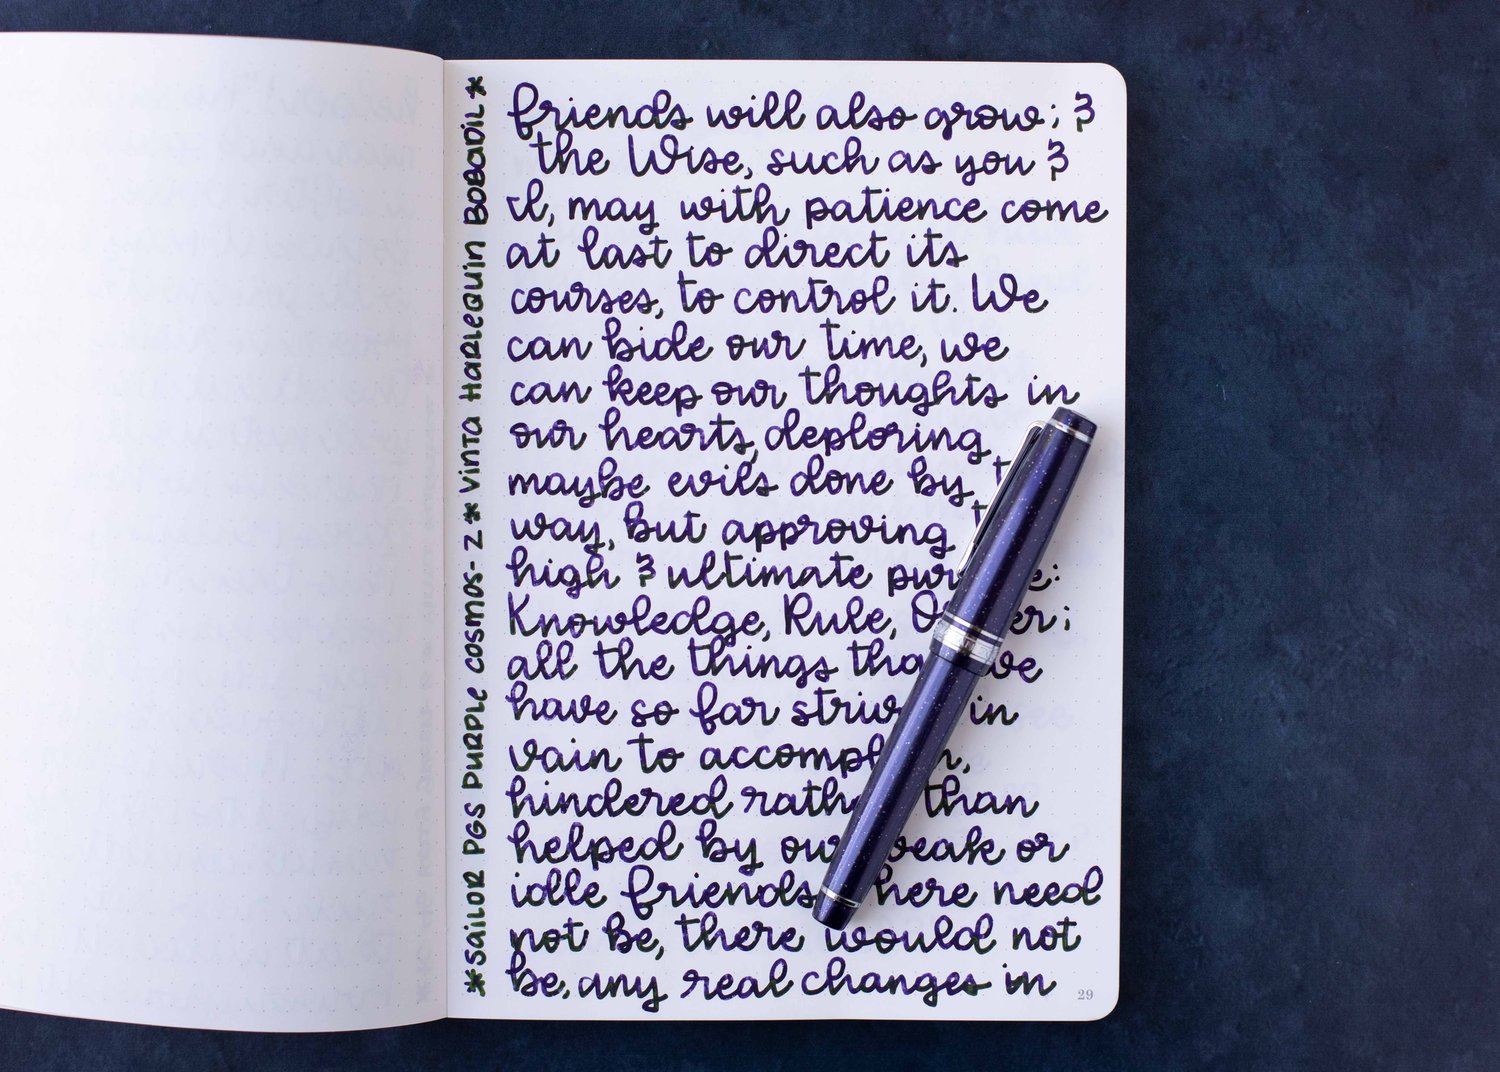 *SAILOR PGS PURPLE COSMOS- Z * VINTA HARLEQUIN BOBADIL *
friends will also grow; &
the Wise, such as you &
I, may with patience come
at last to direct its
courses, to control it. We
can bide our time, we
can keep our thoughts in
our hearts, deploring
maybe evils done by
way, but approving
high & ultimate
Knowledge, Rule,
all the things
have so far in
vain to
hindered than
helped by or
idle friends need
not be, there would not
be, any real changes in
29